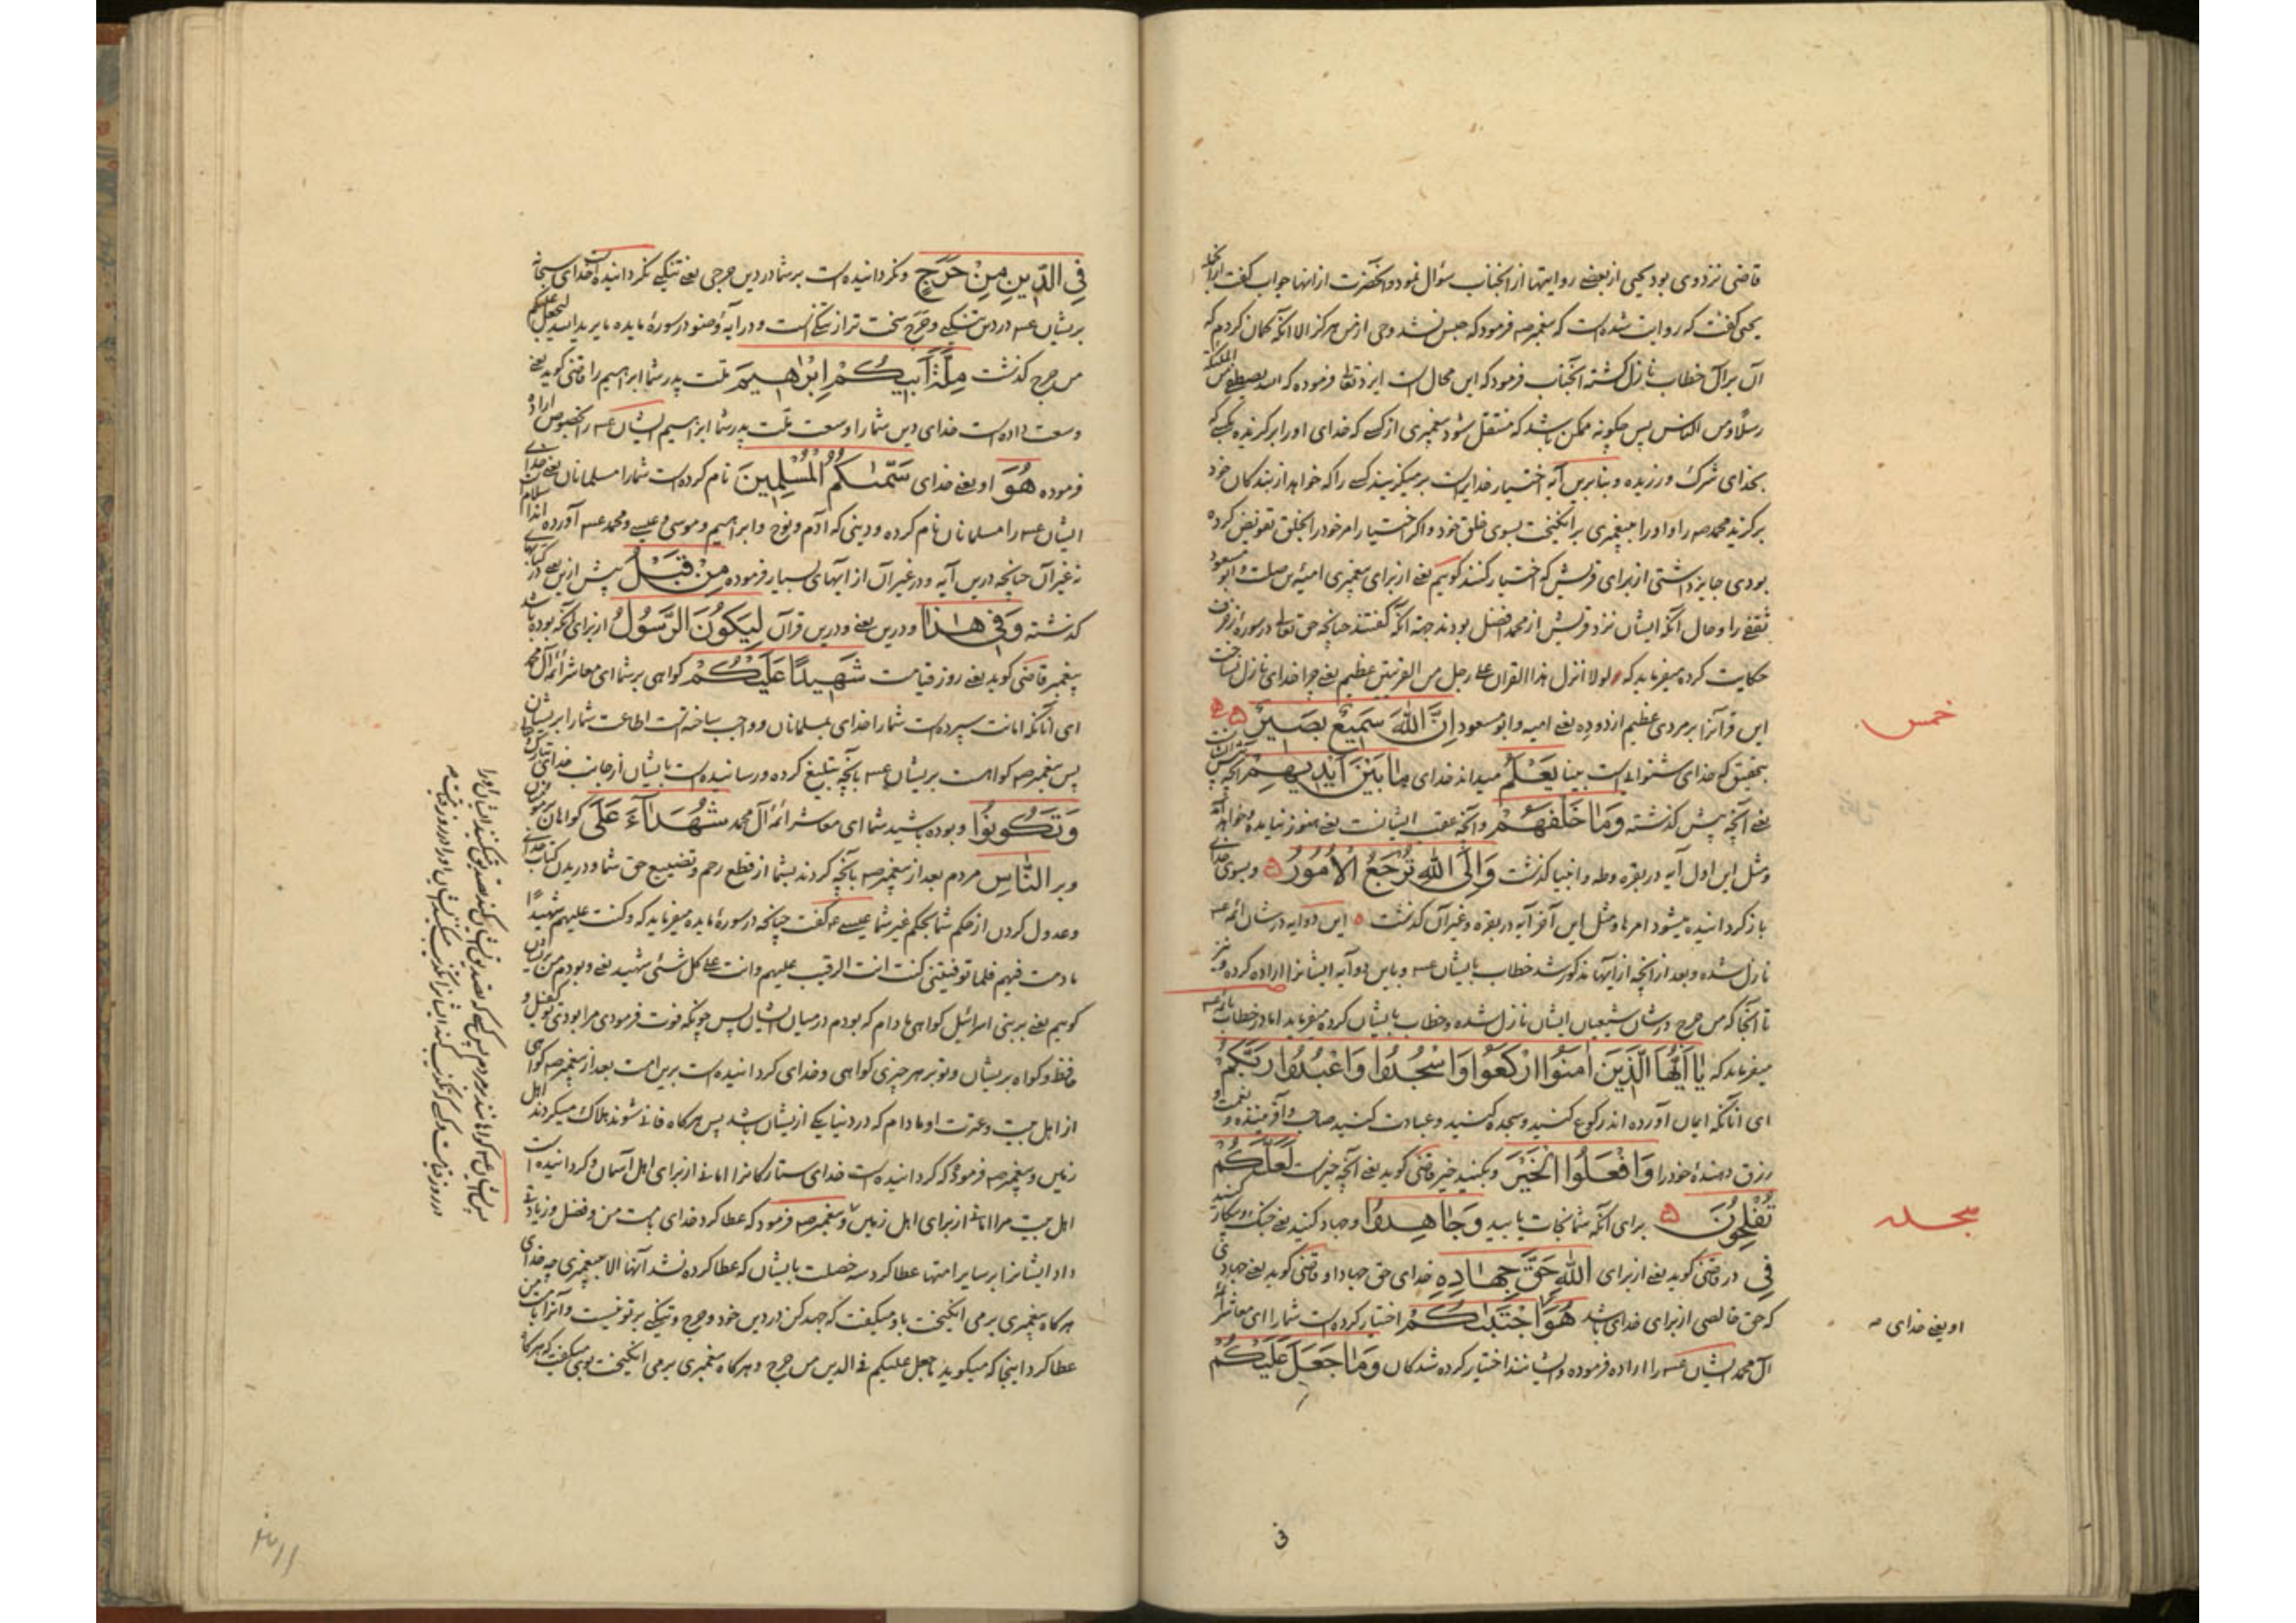 قاضی نزد وی بود یحیی از بعضی روایتها از انجناب سؤال نمود و آنحضرت از انها جواب گفت از آنجمله
یحیی گفت که روایت شده است که پیغمبر صه فرمود که حبس نشد وحی از من هرکز الا انکه کمان کردم که
آن بر آل خطاب نازل کشته انجناب فرمود که این محال است ایزد تعالی فرموده که الله یصطفی من الملئکة
رسلا و من الناس پس چکونه ممکن باشد که منتقل شود پیغمبری از کسی که خدای او را برکزیده بکسی که
بخدای شرک ورزیده و بنابرین آیه اختیار خدایراست بر میکزیند کسی را که خواهد از بندکان خود
برکزید محمد صه را و او را بپیغمبری برانکیخت بسوی خلق خود و اکر اختیار امر خود را بخلق تفویض کرده
بودی جایز داشتی از برای قریش که اختیار کنند کوییم یعنی از برای پیغمبری امیة بن صلت و ابو مسعود
ثقفی را و حال آنکه ایشان نزد قریش از محمد افضل بودند جهة آنکه گفتند چنانچه حق تعالی در سورهٔ زخرف
حکایت کرده میفرماید که لولا انزل هذا القران علی رجل من القریتین عظیم یعنی چرا خدای نازل نساخت
این قرآنرا بر مردی عظیم از دو ده یعنی امیه و ابو مسعود اِنَّ اللهَ سَمیعٌ بَصیرٌ
بتحقیق که خدای شنوای است بینا یَعْلَمُ میداند خدای مٰا بَیْنَ اَیْدیهِمْ آنچه پیش ایشان است
یعنی آنچه پیش گذشته وَمٰا خَلْفَهُمْ و آنچه عقب ایشانست یعنی هنوز نیامده و خواهد آمد
و مثل این اول آیه در بقره و طه و انبیا گذشت وَاِلَی اللهِ تُرْجَعُ الْاُمُورُ و بسوی خدای
باز گردانیده میشود امرها و مثل این آخر آیه در بقره و غیر آن گذشت این دو آیه در شان ائمه عه
نازل شده و بعد از آنچه از آیها مذکور شد خطاب بایشان عه و باین دو آیه ایشانرا اراده کرده و نیز
تا آنجا که من حرج در شان شیعیان ایشان نازل شده و خطاب بایشان کرده میفرماید اما در خطاب بائمه عه
میفرماید که یٰا اَیُّهَا الَّذینَ اٰمَنُوا ارْکَعُوا وَاسْجُدُوا وَاعْبُدُوا رَبَّکُمْ
ای آنانکه ایمان آورده اند رکوع کنید و سجده کنید و عبادت کنید صاحب و آفریننده و نعمت و
رزق دهندهٔ خود را وَافْعَلُوا الْخَیْرَ و بکنید خیر قاضی کوید یعنی آنچه خیر است لَعَلَّکُمْ
تُفْلِحُونَ برای آنکه شما نجات یابید وَجٰاهِدُوا و جهاد کنید یعنی جنگ و پیکار کنید
فِی در قاضی کوید یعنی از برای اللهِ حَقَّ جِهٰادِهِ خدای حق جهاد او قاضی کوید یعنی جهادی
که حق خالصی از برای خدای باشد هُوَ اجْتَبٰیکُمْ اختیار کرده است شما را ای معاشر ائمهٔ
آل محمد ایشان عه را اراده فرموده و ایشانند اختیار کرده شدکان وَمٰا جَعَلَ عَلَیْکُمْ
خمس
سجده
او یعنی خدای صه
فی
فِی الدّینِ مِنْ حَرَجٍ و نکردانیده است بر شما در دین حرجی یعنی تنکیی نکردانیده است خدای سبحانه
بریشان عه در دین تنکیی و حرج سخت تر از تنکی است و در آیهٔ وضو در سورهٔ مایده ما یرید الله لیجعل علیکم
من حرج گذشت مِلَّةَ اَبیکُمْ اِبْرٰهیمَ ملت پدر شما ابراهیم را قاضی کوید یعنی
وسعت داده است خدای دین شما را وسعت ملت پدر شما ابراهیم ایشان عه را بخصوص اراده
فرموده هُوَ او یعنی خدای سَمّٰیکُمُ الْمُسْلِمینَ نام کرده است شما را مسلمانان یعنی خدای
ایشان عه را مسلمانان نام کرده و دینی که آدم و نوح و ابراهیم و موسی و عیسی و محمد عه آورده اند اسلام است
نه غیر آن چنانچه درین آیه و در غیر آن از آیهای بسیار فرموده مِنْ قَبْلُ پیش ازین یعنی در کتابهای
گذشته وَفی هٰذا و درین یعنی و درین قرآن لِیَکُونَ الرَّسُولُ از برای آنکه بوده باشد
پیغمبر قاضی کوید یعنی روز قیامت شَهیدًا عَلَیْکُمْ کواهی بر شما ای معاشر ائمهٔ آل محمد
ای آنانکه امانت سپرده است شما را خدای بمسلمانان و واجب ساخته است اطاعت شما را بریشان
پس پیغمبر صه کواهست بریشان عه بآنچه تبلیغ کرده و رسانیده است بایشان از جانب خدای تبارک و تعالی
وَتَکُونُوا و بوده باشید شما ای معاشر ائمهٔ آل محمد شُهَدٰاءَ عَلَی کواهان بر
و بر النّٰاسِ مردم بعد از پیغمبر صه بآنچه کردند بشما از قطع رحم و تضییع حق شما و دریدن کتاب خدای
و عدول کردن از حکم شما بحکم غیر شما عیسی عه گفت چنانچه در سورهٔ مایده میفرماید که و کنت علیهم شهیدًا
ما دمت فیهم فلما توفیتنی کنت انت الرقیب علیهم و انت علی کل شئ شهید یعنی و بودم من بریشان
کوییم یعنی بر بنی اسرائیل کواهی مادام که بودم در میان ایشان پس چونکه فوت فرمودی مرا بودی تو
حافظ و کواه بریشان و تو بر هر چیزی کواهی و خدای کردانیده است برین امت بعد از پیغمبر صه کواهی
از اهل بیت و عترت او مادام که در دنیا یکی ازیشان باشد پس هر کاه فانی شوند هلاک میکردند اهل
زمین و پیغمبر صه فرمود که کردانیده است خدای ستارکانرا امانی از برای اهل آسمان و کردانیده است
اهل بیت مرا امانی از برای اهل زمین و پیغمبر صه فرمود که عطا کرد خدای بامت من و فضل و زیادتی
داد ایشانرا بر سایر امتها عطا کرد سه خصلت بایشان که عطا کرده نشد آنها الا بپیغمبری چه خدای
هر کاه پیغمبری بر می انکیخت باو میکفت که جهد کن در دین خود و حرج و تنکیی بر تو نیست و آنرا بامت من
عطا کرد اینجا که میکوید ما جعل علیکم فی الدین من حرج و هر کاه پیغمبری بر می انکیخت بوی میکفت که هر کاه